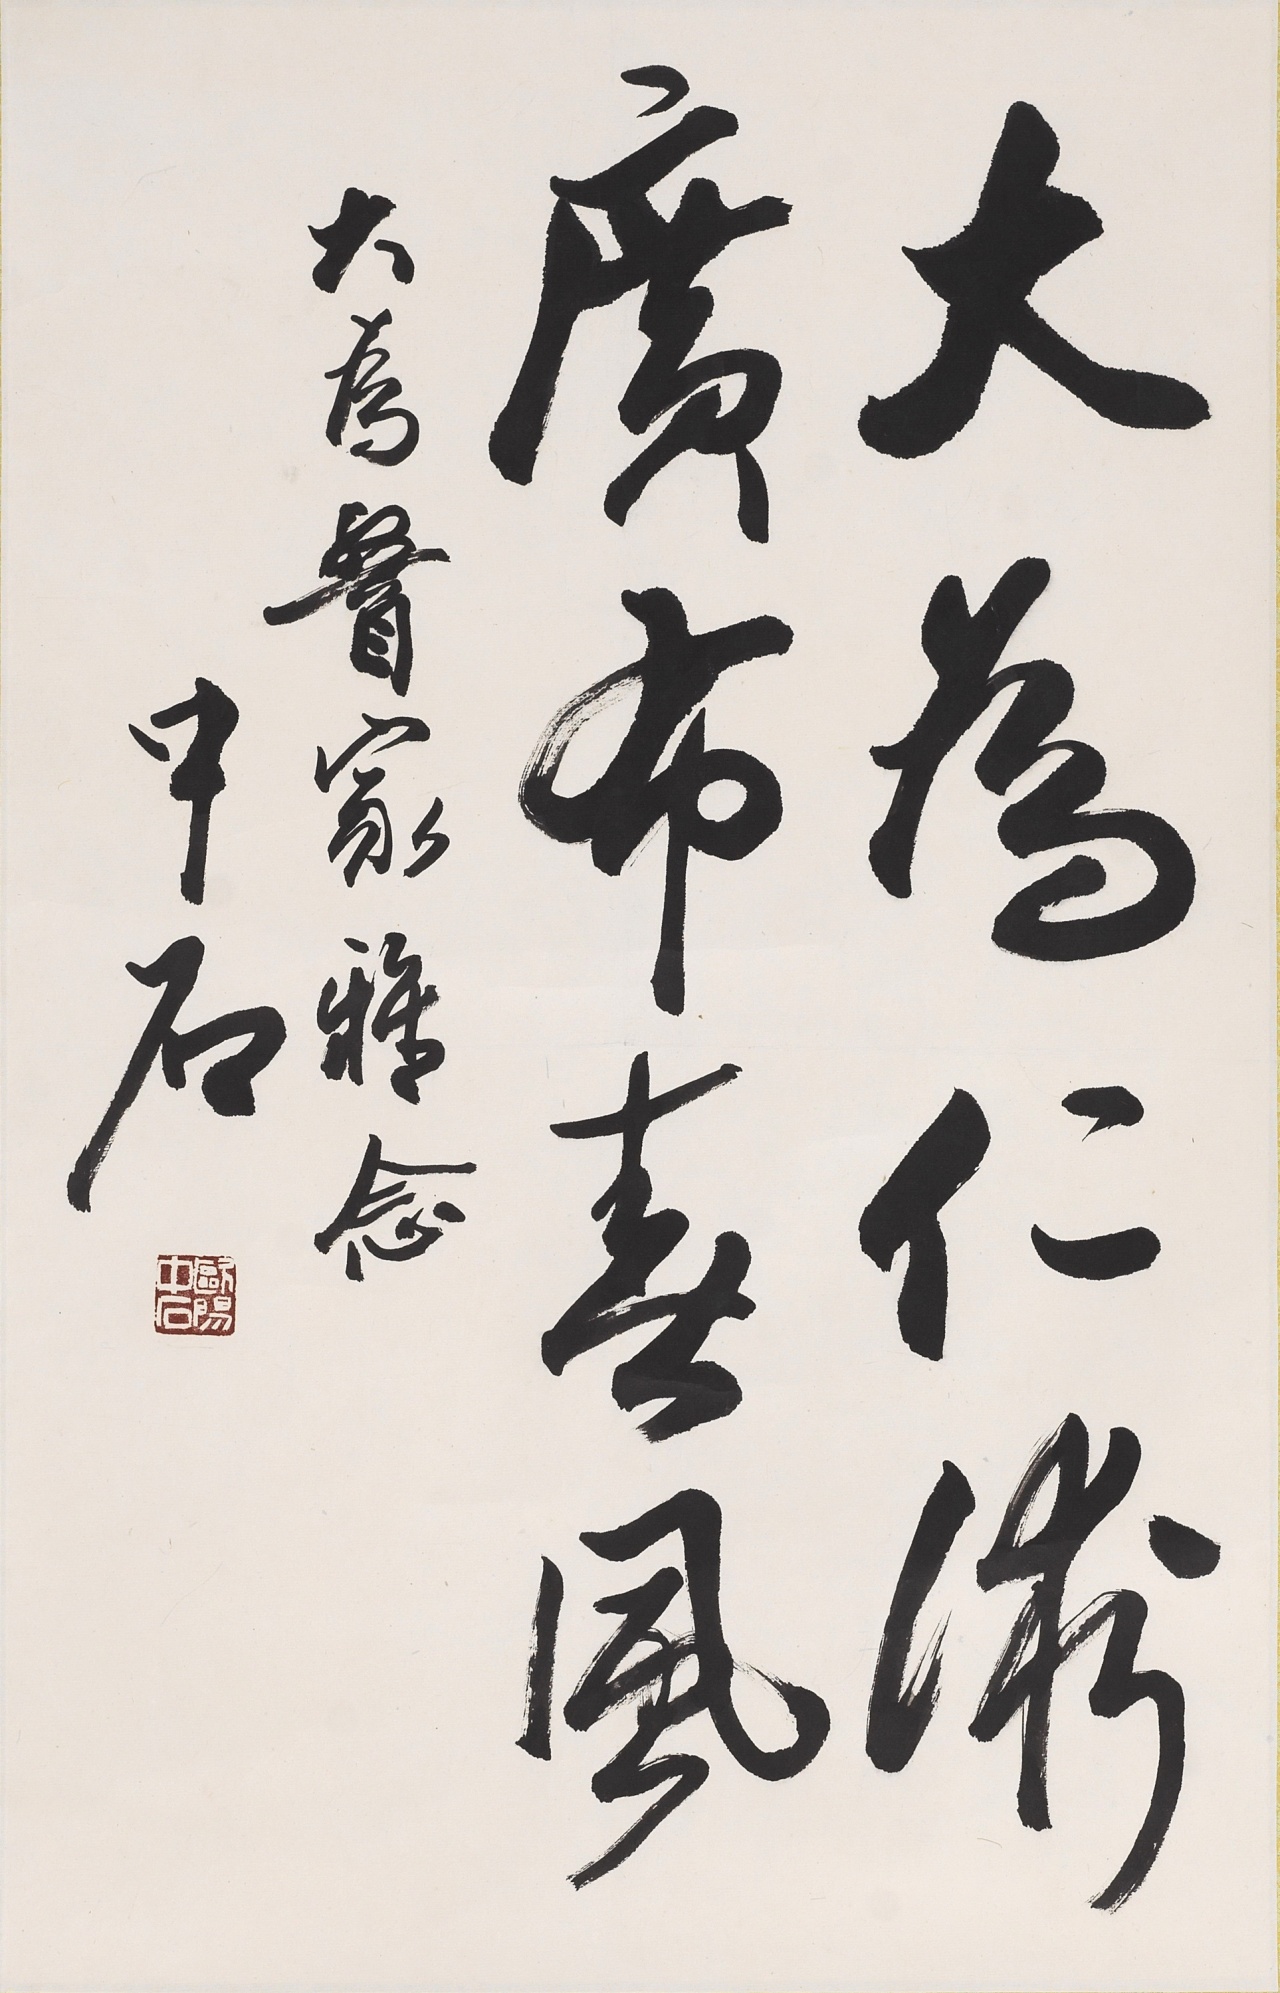 大為仁術
廣布春風
大為醫家雅念
中石
歐陽中石